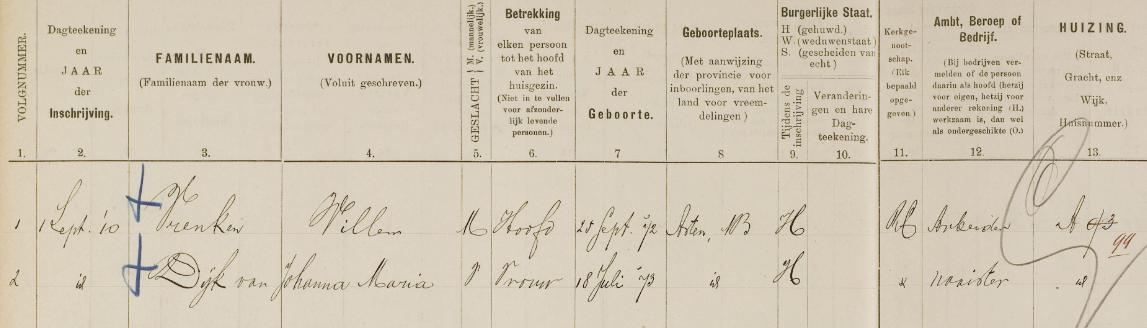 VOLGNUMMER.
Dagteekening
en
JAAR
der
Inschrijving.
FAMILIENAAM.
(Familienaam der vrouw.)
VOORNAMEN.
(Voluit geschreven.)
GESLACHT { M. (mannelijk.) V. (vrouwelijk.)
Betrekking
van
elken persoon
tot het hoofd
van het
huisgezin.
(Niet in te vullen
voor afzonder-
lijk levende
personen.)
Dagteekening
en
JAAR
der
Geboorte.
Geboorteplaats.
(Met aanwijzing
der provincie voor
inboorlingen, van het
land voor vreem-
delingen)
Burgerlijke Staat.
H (gehuwd.)
W. (weduwenstaat)
S. (gescheiden van
echt)
Tijdens de
inschrijving
Veranderin-
gen en hare
Dag-
teekening.
Kerkge-
noot-
schap.
(Elk
bepaald
opge-
geven.)
Ambt, Beroep of
Bedrijf.
(Bij bedrijven ver-
melden of de persoon
daarin als hoofd (hetzij
voor eigen, hetzij voor
anderer rekening (H.)
werkzaam is, dan wel
als ondergeschikte (O.)
HUIZING.
(Straat,
Gracht, enz
Wijk,
Huisnummer.)
1. 2. 3. 4. 5. 6. 7 8 9. 10. 11. 12. 13.
1 1 Sept. '10 Vrenken Willem M Hoofd 25 Sept. '72 Asten, NB H RC Arbeider A 43 99
2 id Dijk van Johanna Maria V Vrouw 18 Juli '73 id H id naaister id